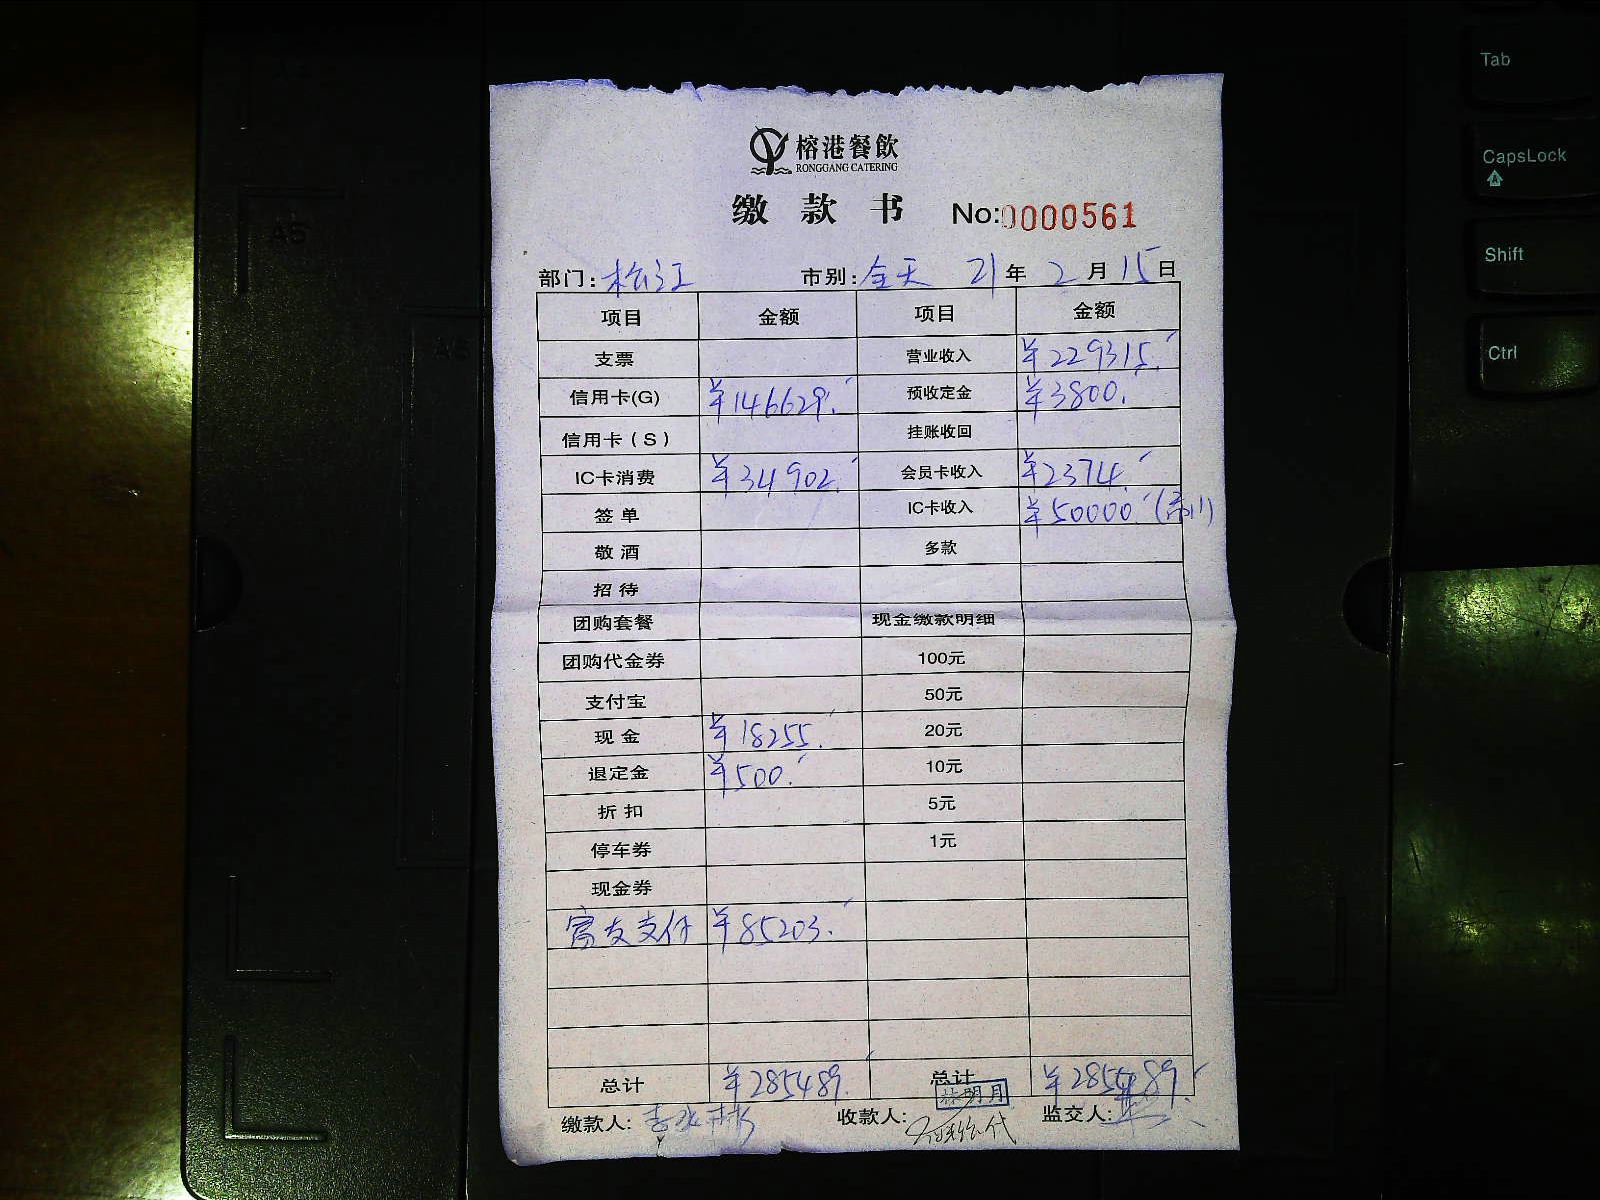 榕港餐飲
RONGGANG CATERING
缴款书 No:0000561
部门: 松江 市别: 全天 21年 2月 15日
项目 金额 项目 金额
支票 营业收入 ¥229315.
信用卡(G) ¥146629. 预收定金 ¥3800.
信用卡(S) 挂账收回
IC卡消费 ¥34902. 会员卡收入 ¥2374.
签单 IC卡收入 ¥50000.
敬酒 多款
招待
团购套餐 现金缴款明细
团购代金券 100元
支付宝 50元
现金 ¥18255. 20元
退定金 ¥500. 10元
折扣 5元
停车券 1元
现金券
富友支付 ¥85203.
总计 ¥285489. 总计 ¥285489.
缴款人: 收款人: 林明月 监交人:
Tab
CapsLock
Shift
Ctrl
A5